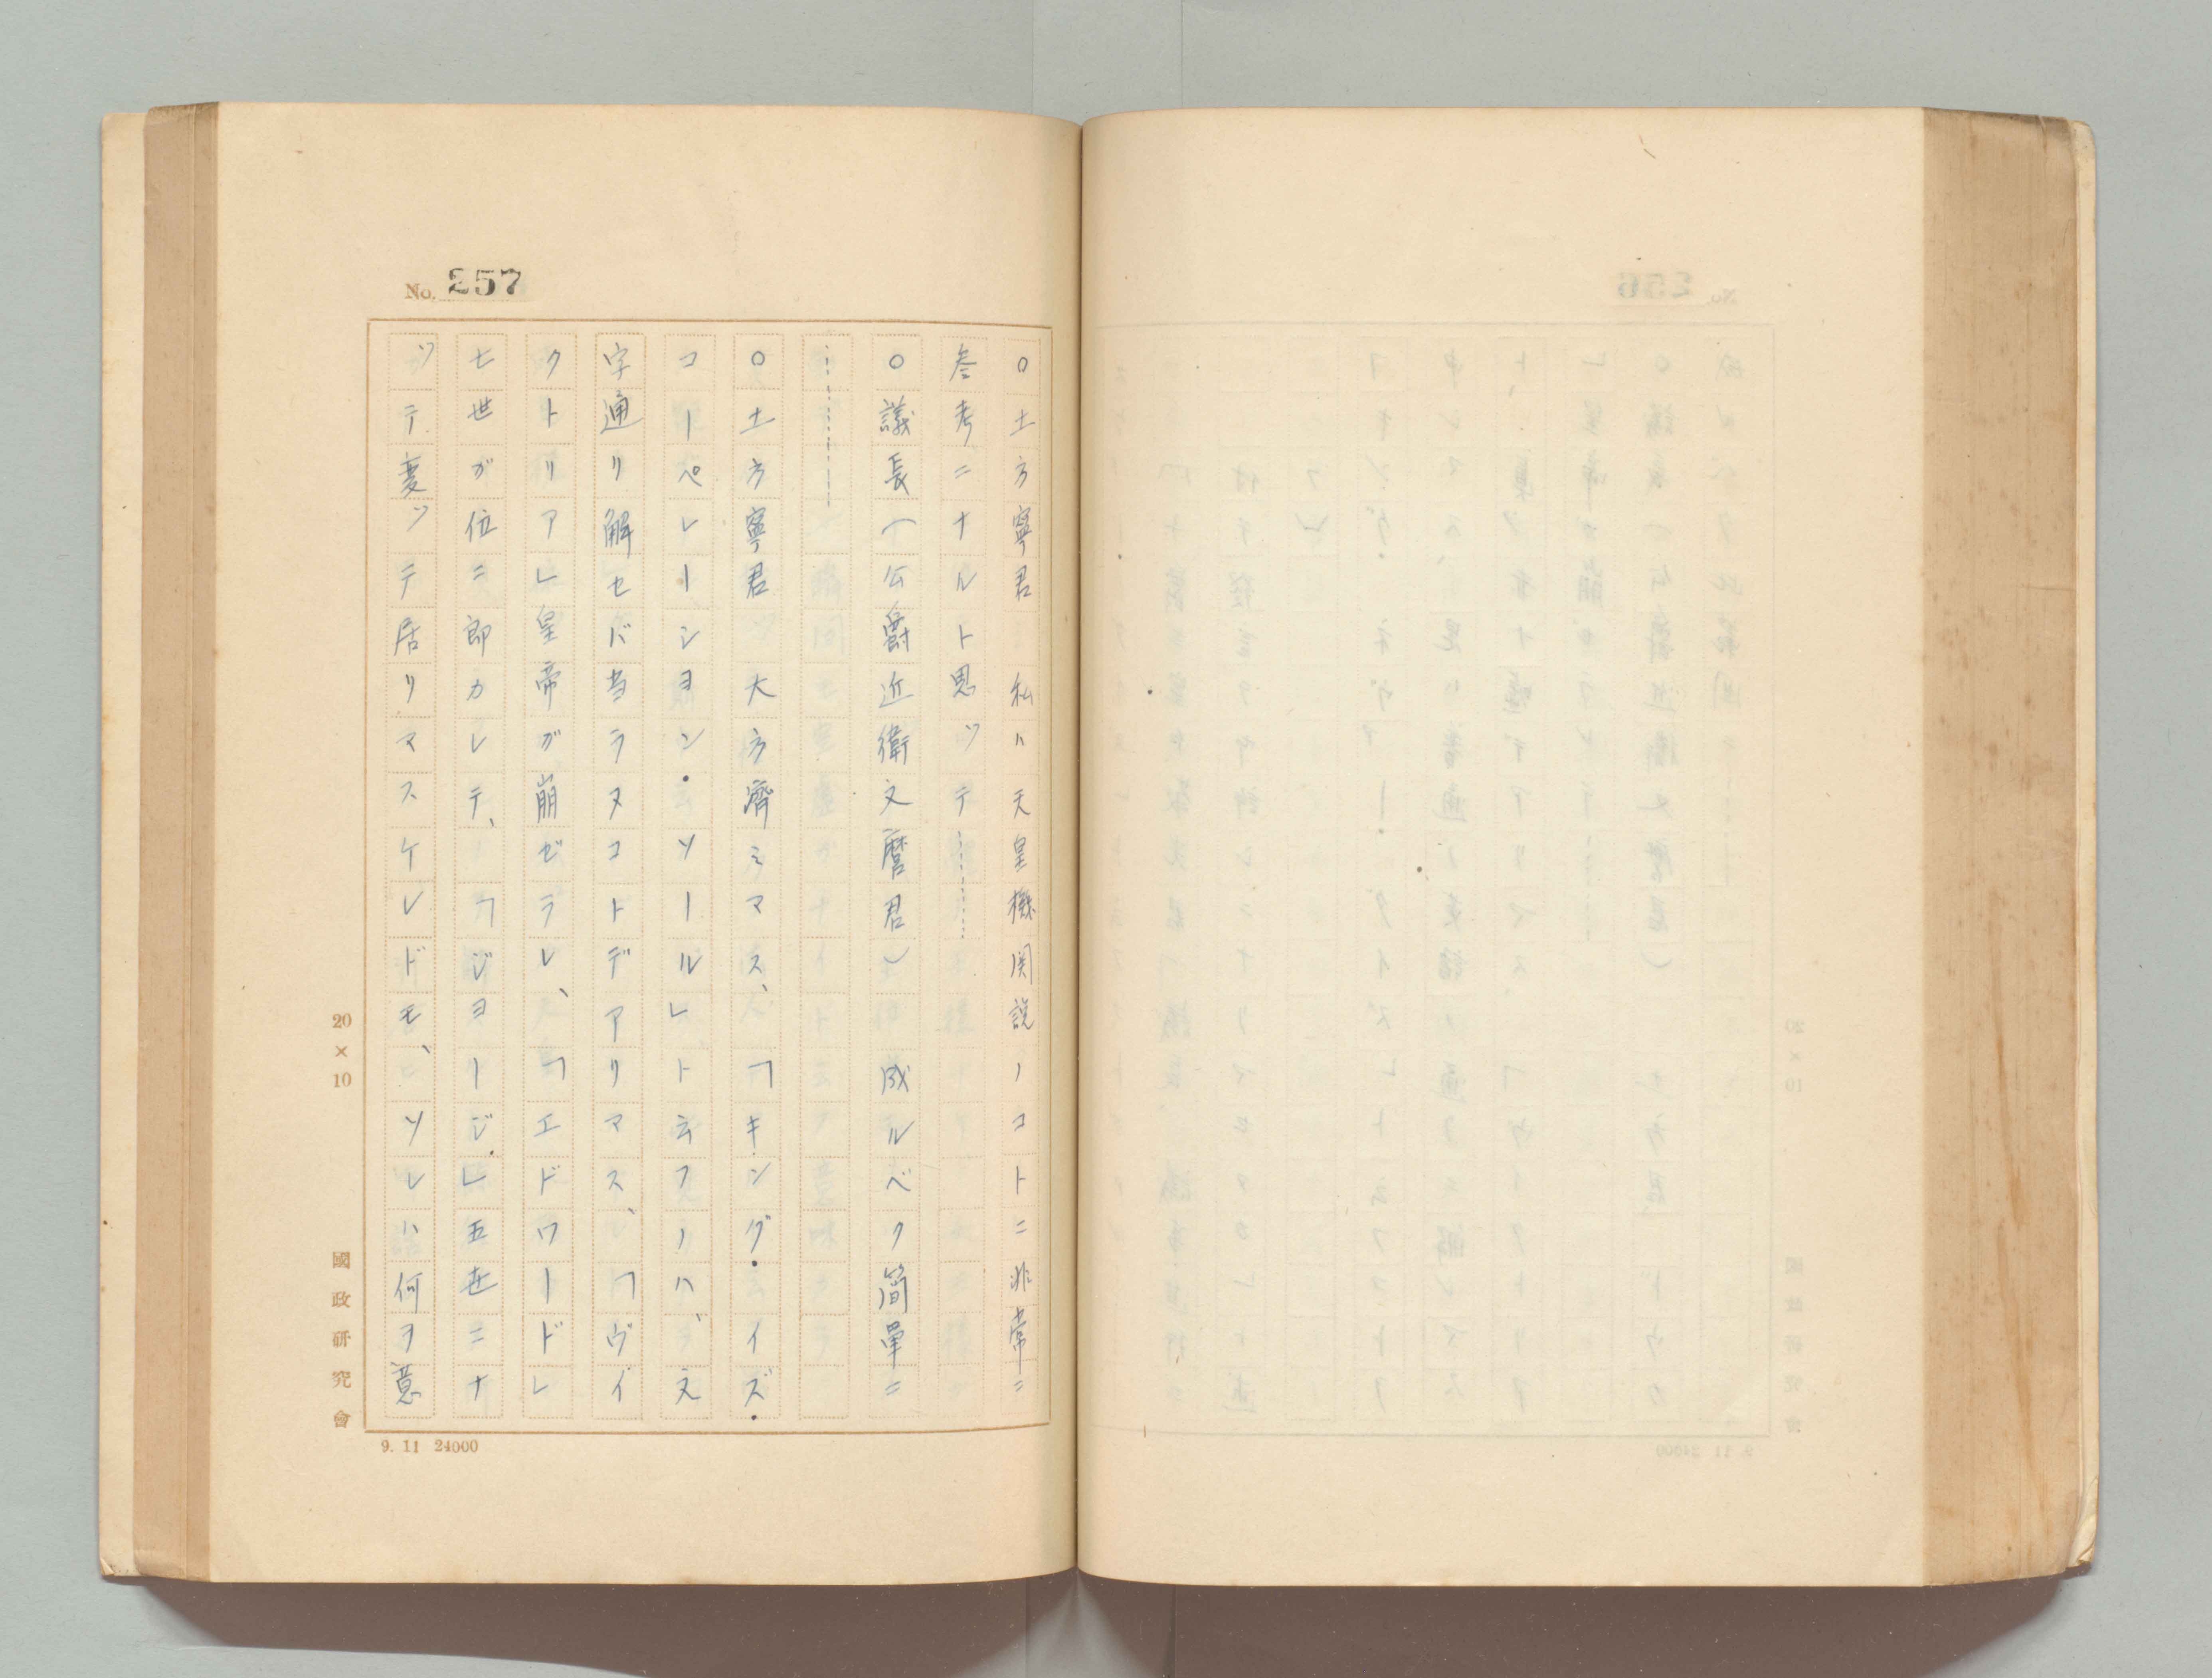 No. 257
○土方寧君 私ハ天皇機関説ノコトニ非常ニ
参考ニナルト思ツテ………
○議長(公爵近衛文麿君) 成ルベク簡単ニ
………
○土方寧君 大方濟ミマス、「キング・イズ・
コーペレーション・ソール」ト云フノハ、文
字通リ解セバ当ラヌコトデアリマス、「ヴイ
クトリア」皇帝ガ崩ゼラレ、「エドワード」
七世ガ位ニ即カレテ、「ジヨージ」五世ニナ
ツテ変ツテ居リマスケレドモ、ソレハ何ヲ意
20×10
國政研究會
9. 11 24000